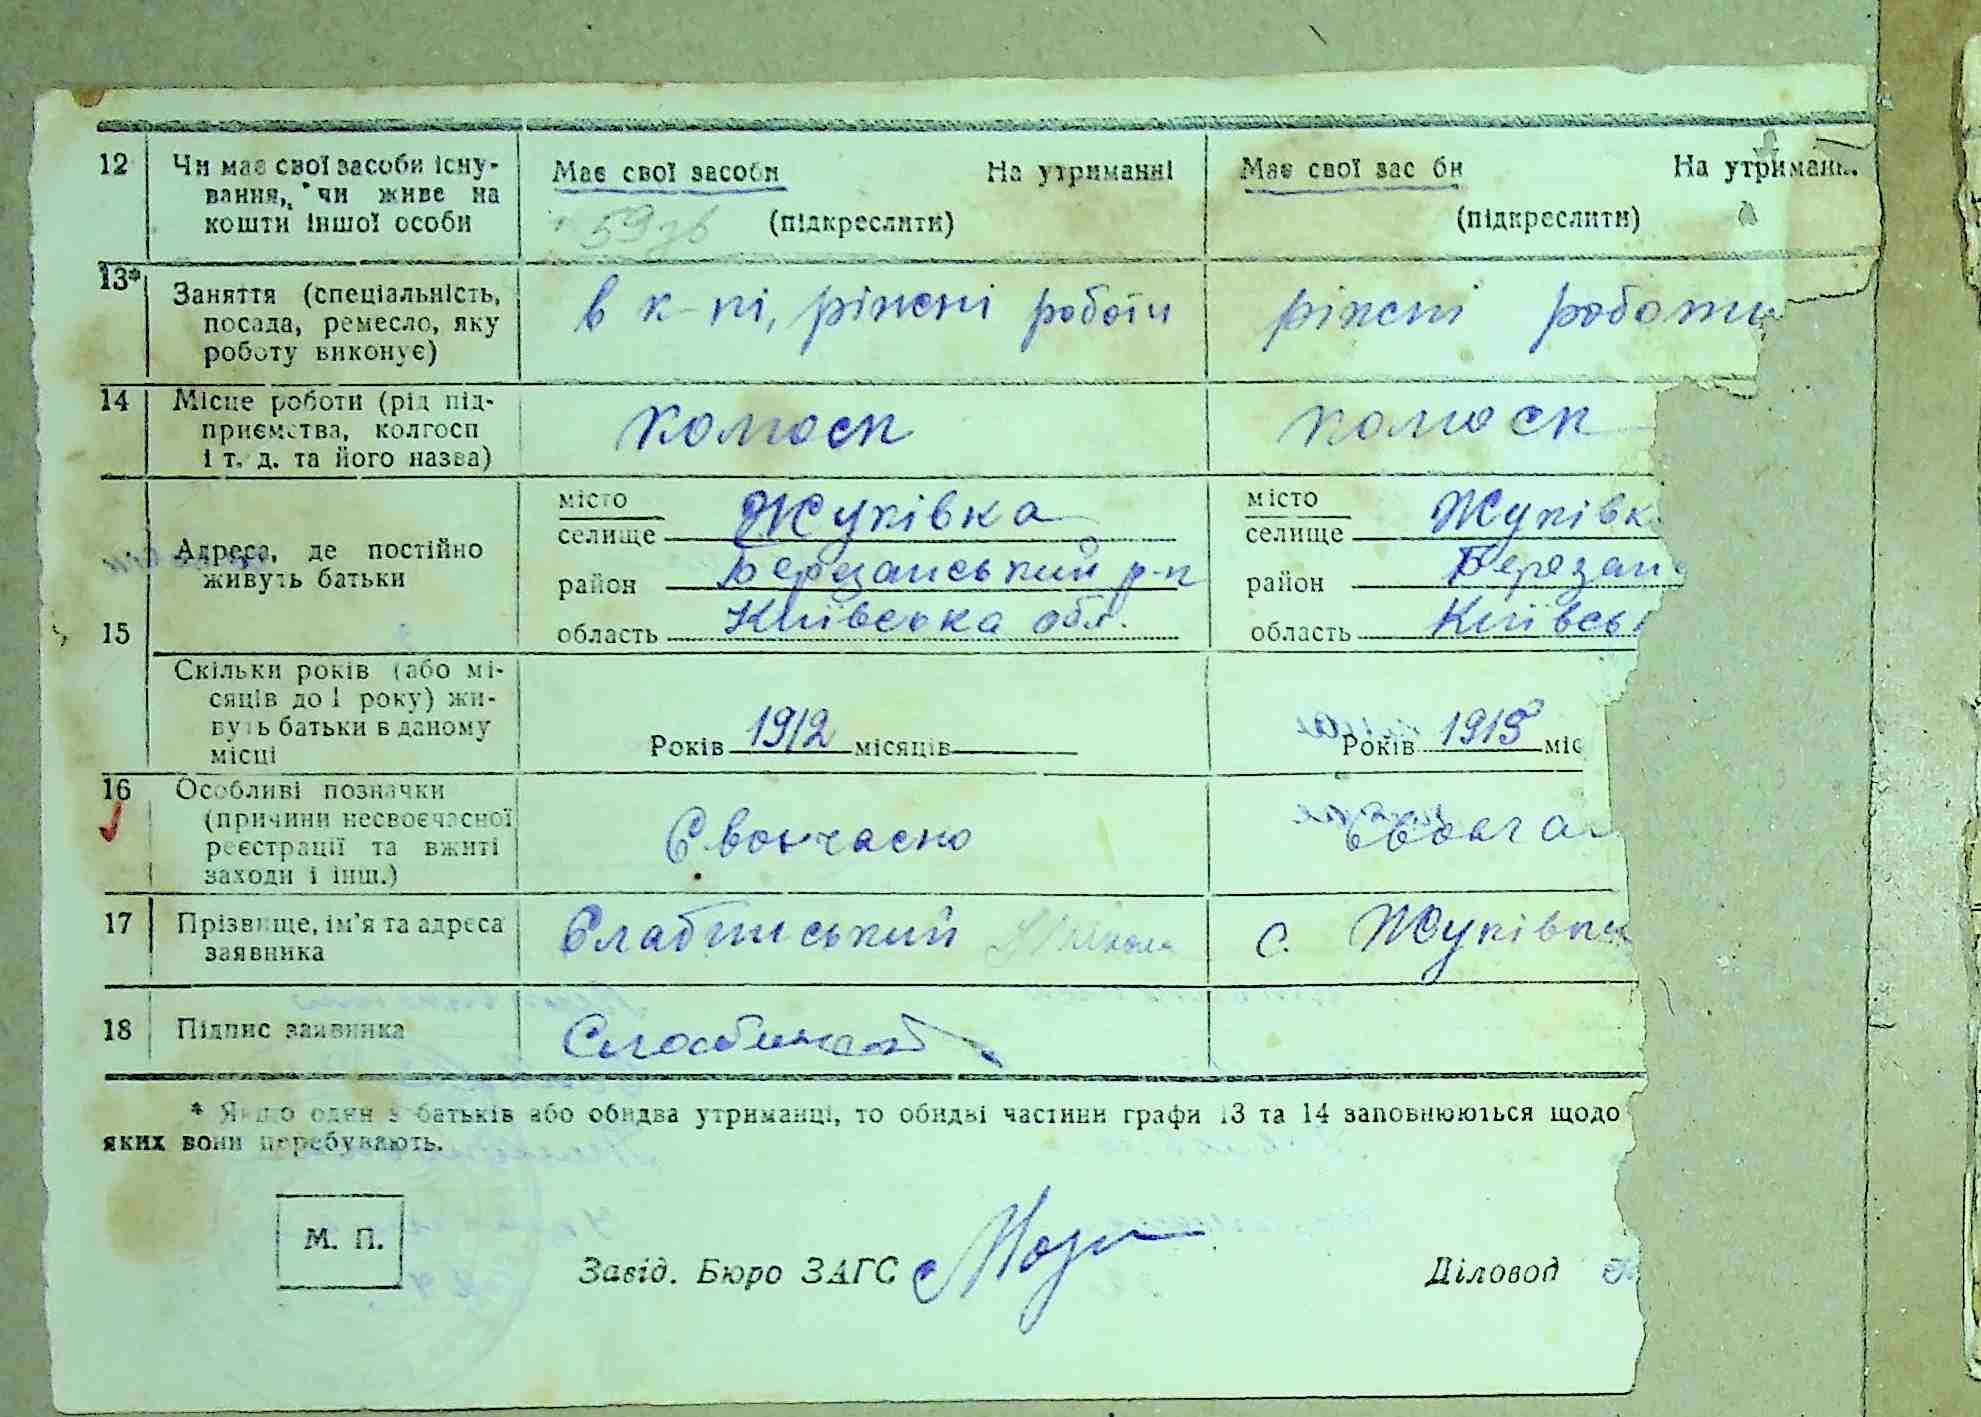 12 Чи має свої засоби існу- Має свої засоби На утриманні Має свої зас би На утриманн.
вання, чи живе на
кошти іншої особи (підкреслити) (підкреслити)
59
13* Заняття (спеціальність, в к-пі, ріжні роботи ріжні роботи
посада, ремесло, яку
роботу виконує)
14 Місце роботи (рід під- колгосп колгосп
приємства, колгосп
і т. д. та його назва)
місто місто
селище Жуківка селище Жуківк
Адреса, де постійно район Березанський р-н район Березан
живуть батьки
15 область Київська обл. область Київсь
Скільки років (або мі-
сяців до 1 року) жи-
вуть батьки в даному Років 1912 місяців Років 1915 міс
місці
16 Особливі позначки
(причини несвоєчасної Своєчасно Своєча
реєстрації та вжиті
заходи і інш.)
17 Прізвище, ім'я та адреса Слабинський Микола с. Жуківка
заявника
18 Підпис заявника
* Якщо один з батьків або обидва утриманці, то обидві частини графи 13 та 14 заповнюються щодо
яких вони перебувають.
М. П.
Завід. Бюро ЗАГС Діловод